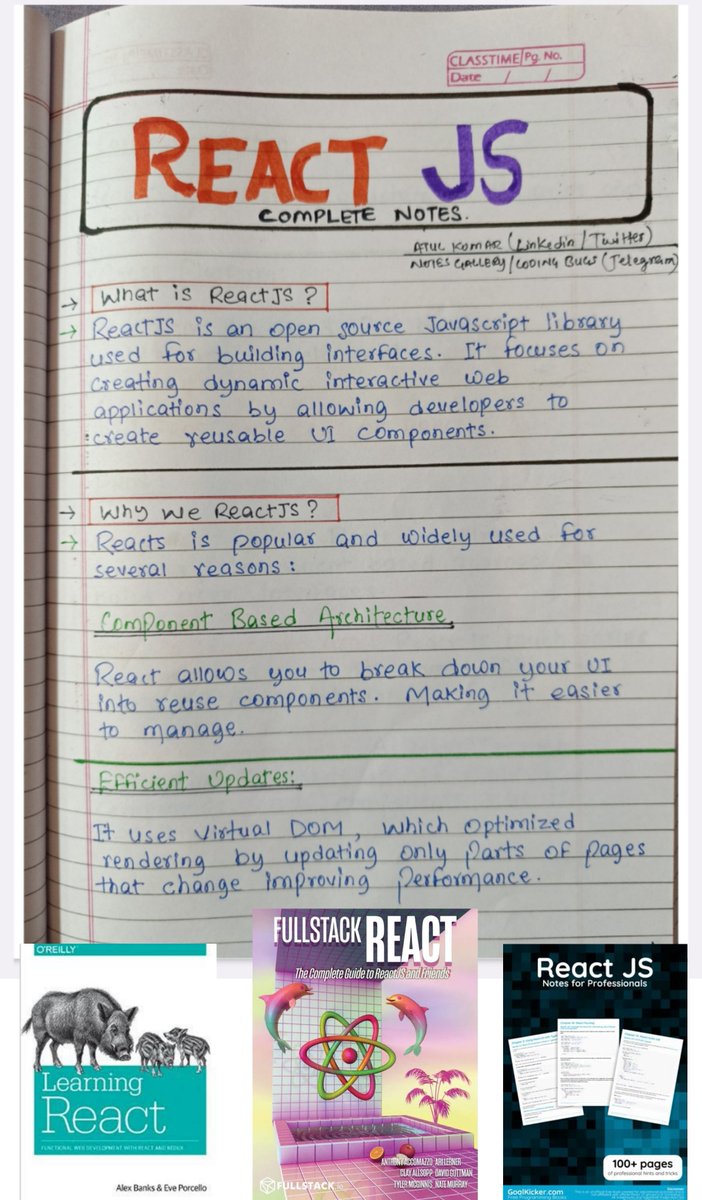 CLASSTIME Pg. No.
Date / /
REACT JS
COMPLETE NOTES.
ATUL KUMAR (Linkedin/Twitter)
NOTES GALLERY/CODING BUGS (Telegram)
→ What is ReactJS?
→ ReactJS is an open source Javascript library
used for building interfaces. It focuses on
creating dynamic interactive web
applications by allowing developers to
create reusable UI components.
→ Why We ReactJS?
→ Reacts is popular and widely used for
several reasons:
Component Based Architecture
React allows you to break down your UI
into reuse components. Making it easier
to manage.
Efficient Updates:
It uses Virtual DOM, which optimized
rendering by updating only parts of pages
that change improving performance.
O'REILLY
Learning
React
FUNCTIONAL WEB DEVELOPMENT WITH REACT AND REDUX
Alex Banks & Eve Porcello
FULLSTACK REACT
The Complete Guide to ReactJS and Friends
ANTHONY ACCOMAZZO ARI LERNER
CLAY ALLSOPP DAVID GUTTMAN
TYLER MCGINNIS NATE MURRAY
FULLSTACK.io
React JS
Notes for Professionals
100+ pages
of professional hints and tricks
GoalKicker.com
Free Programming Books